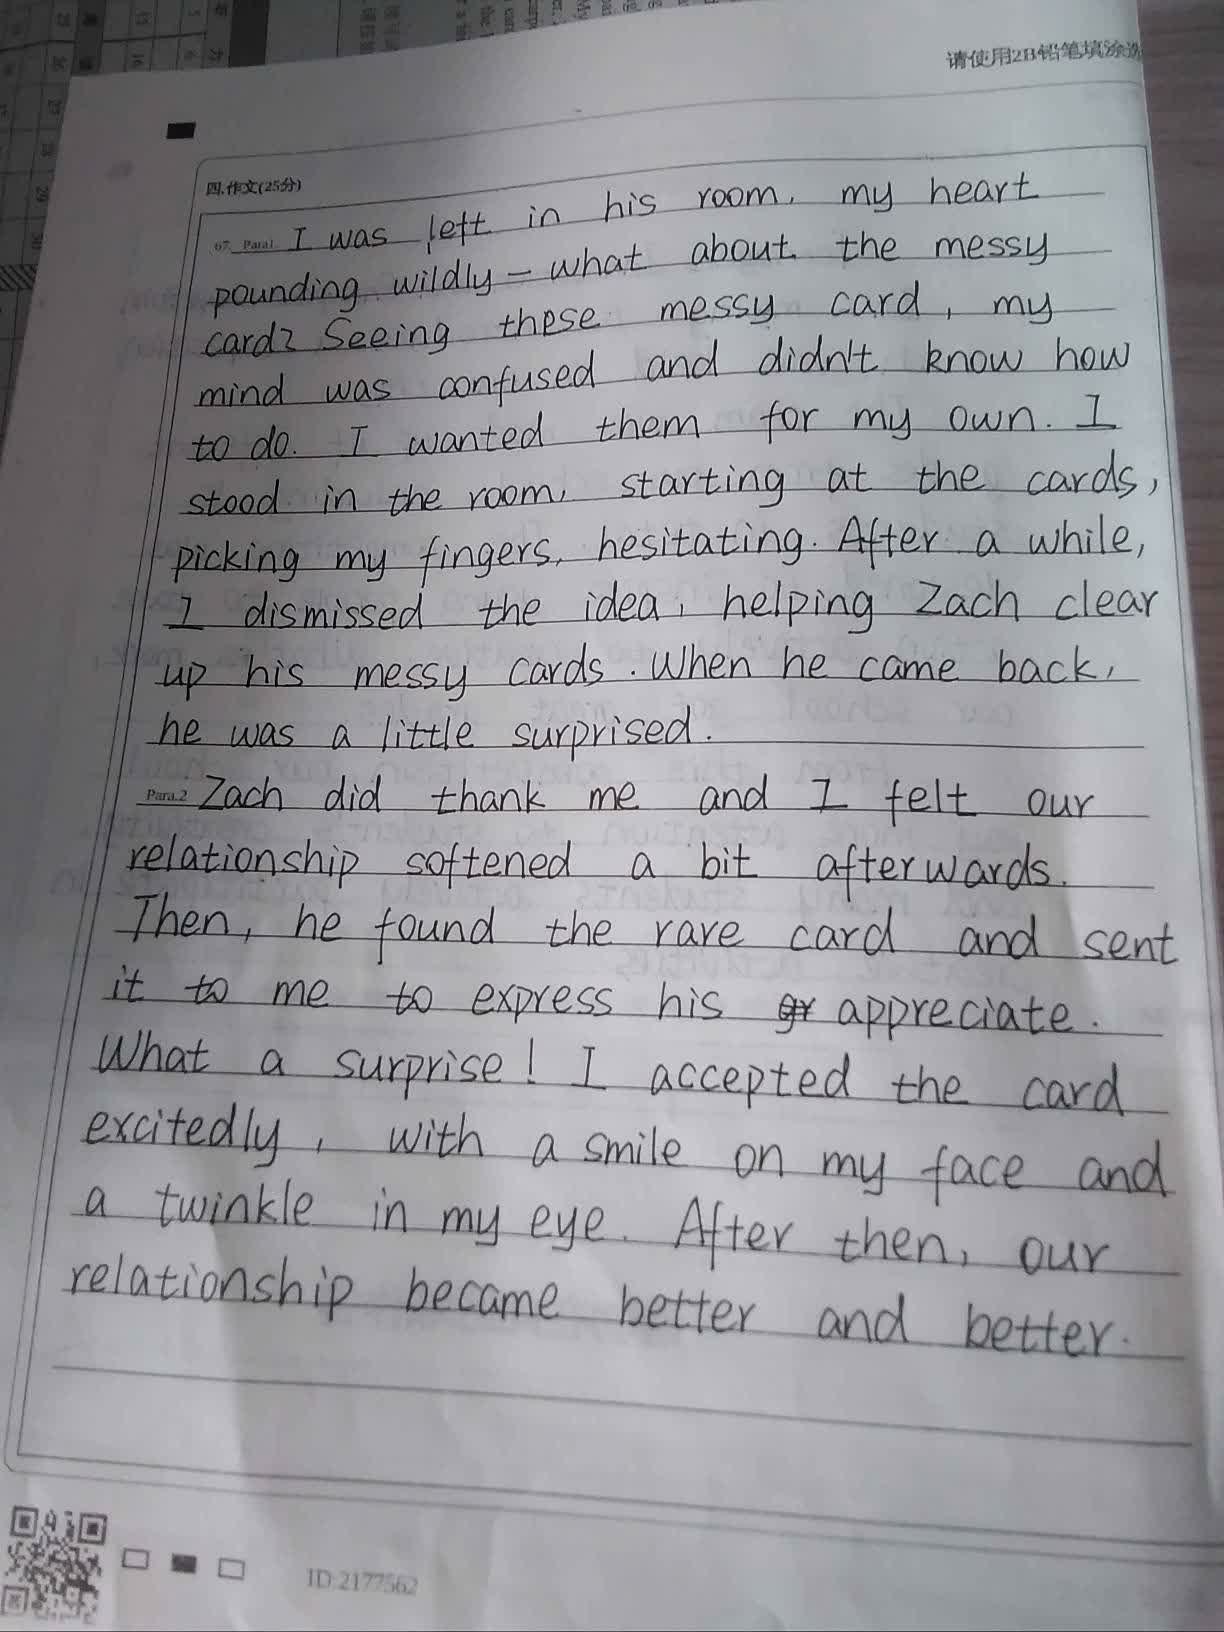 请使用2B铅笔填涂选
四.作文(25分)
67. Para1. I was left in his room, my heart
pounding wildly — what about the messy
card? Seeing these messy card, my
mind was confused and didn't know how
to do. I wanted them for my own. I
stood in the room, starting at the cards,
picking my fingers, hesitating. After a while,
I dismissed the idea, helping Zach clear
up his messy cards. When he came back,
he was a little surprised.
Para.2 Zach did thank me and I felt our
relationship softened a bit afterwards.
Then, he found the rare card and sent
it to me to express his appreciate.
What a surprise! I accepted the card
excitedly, with a smile on my face and
a twinkle in my eye. After then, our
relationship became better and better.
ID:2177562